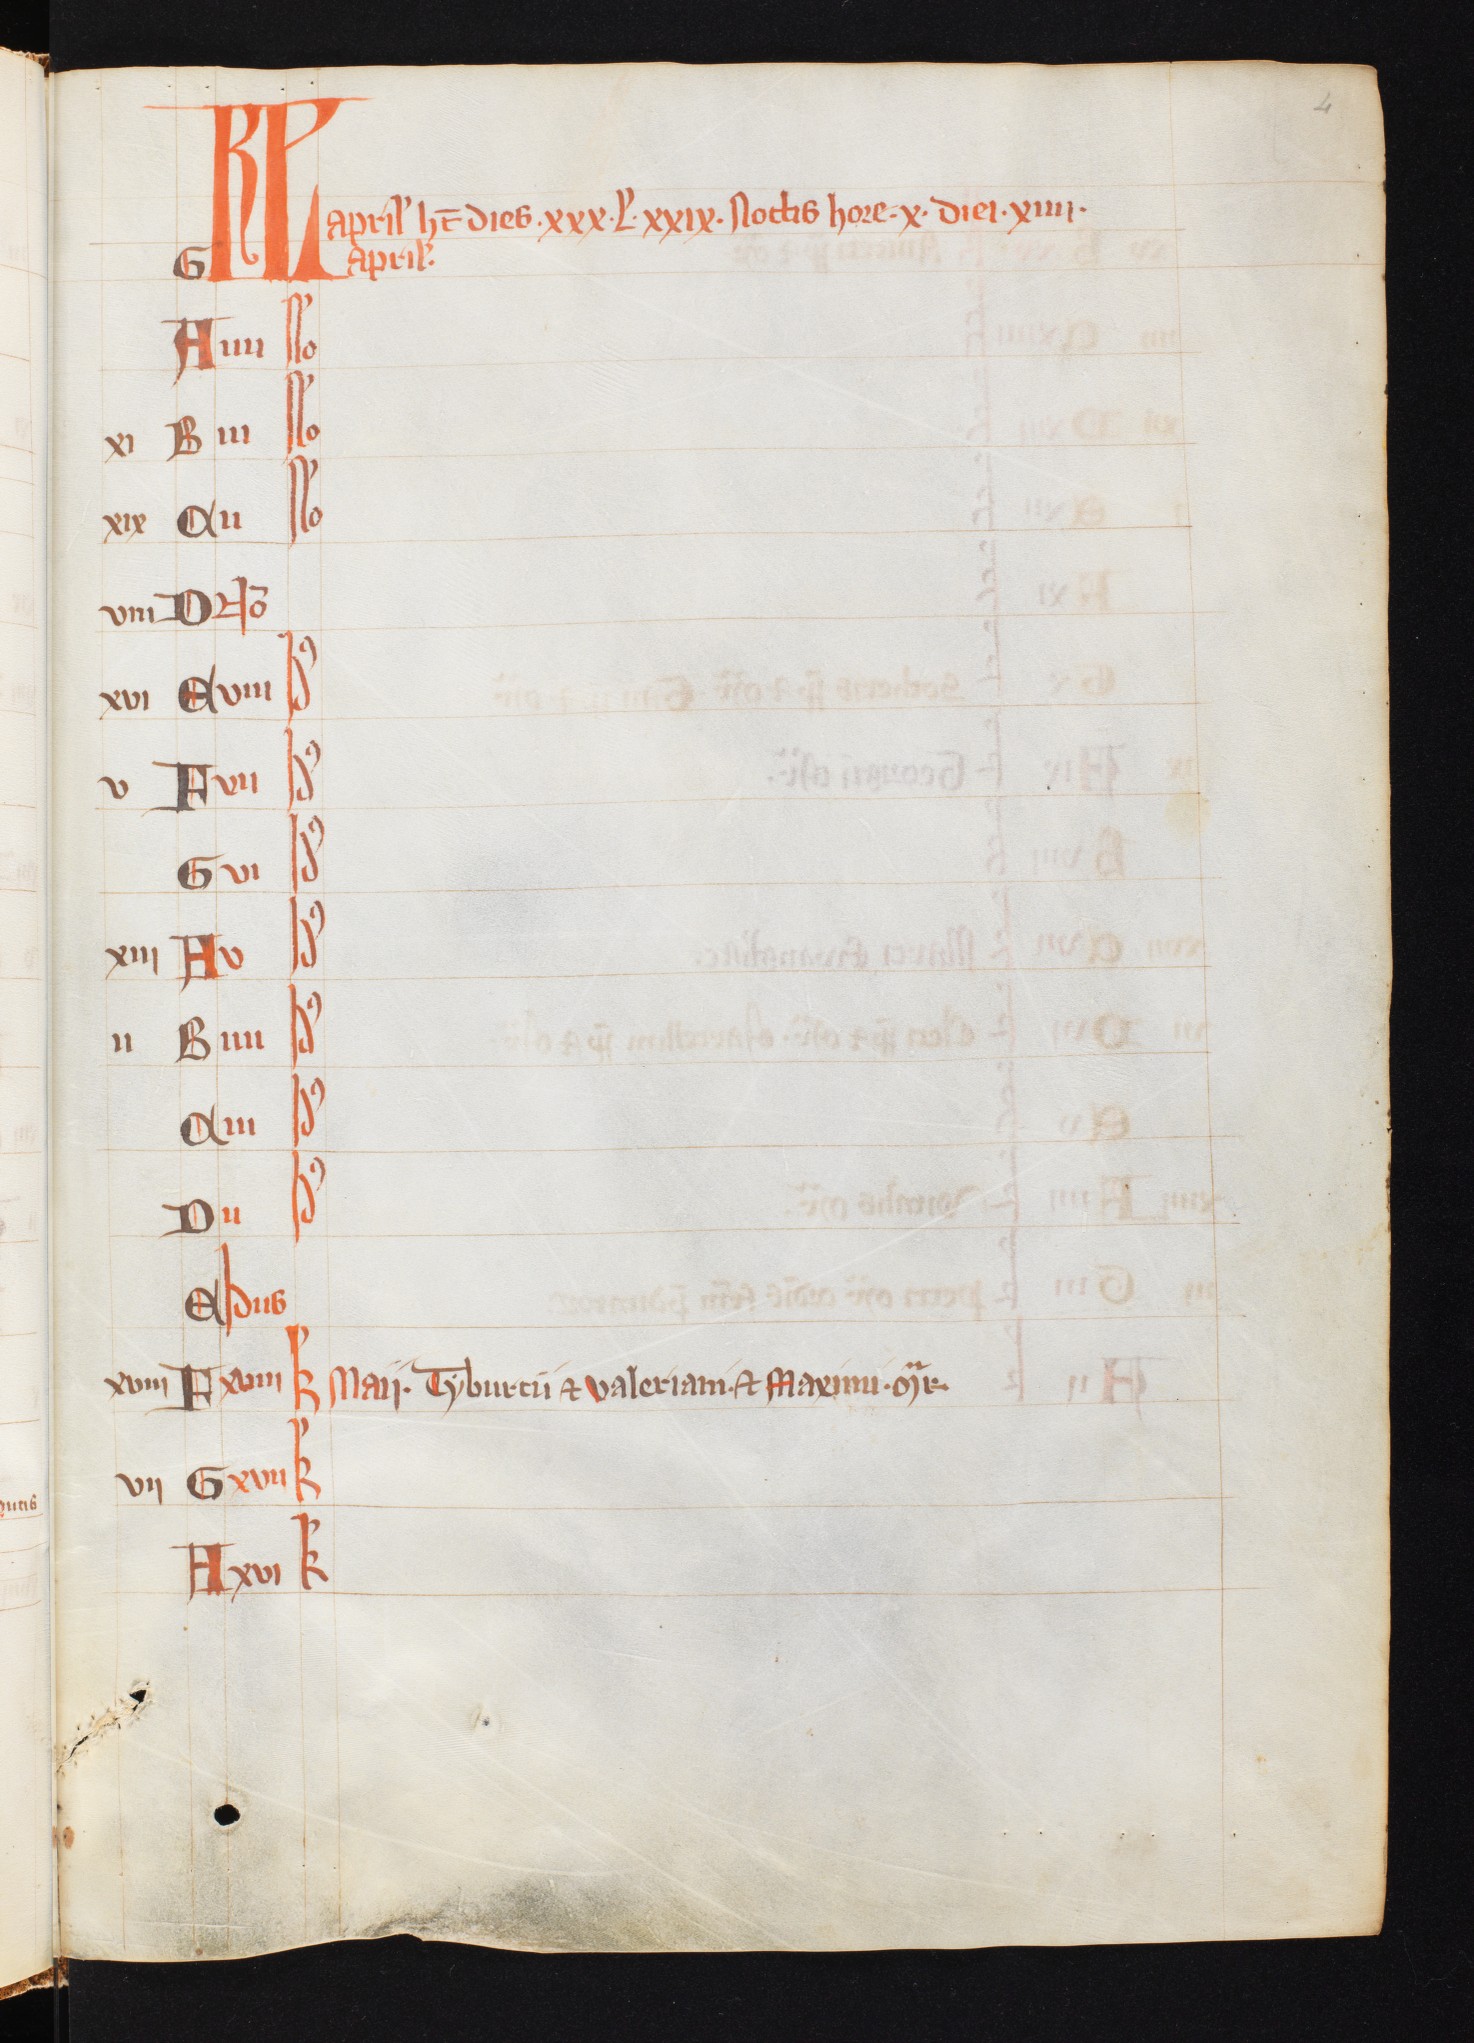 4
KL April' ht̄ dies · xxx · l' · xxix · Noctis hore · x · diei · xiiii ·
G April'.
A iiii No
xi B iii No
xix C ii No
viii D No
xvi E viii Id'
v F vii Id'
G vi Id'
xiii A v Id'
ii B iiii Id'
C iii Id'
D ii Id'
E Idus
xviii F xviii k Maij. Tyburcii et valeriani. et Maximi. mr̄.
vii G xvii k
A xvi k